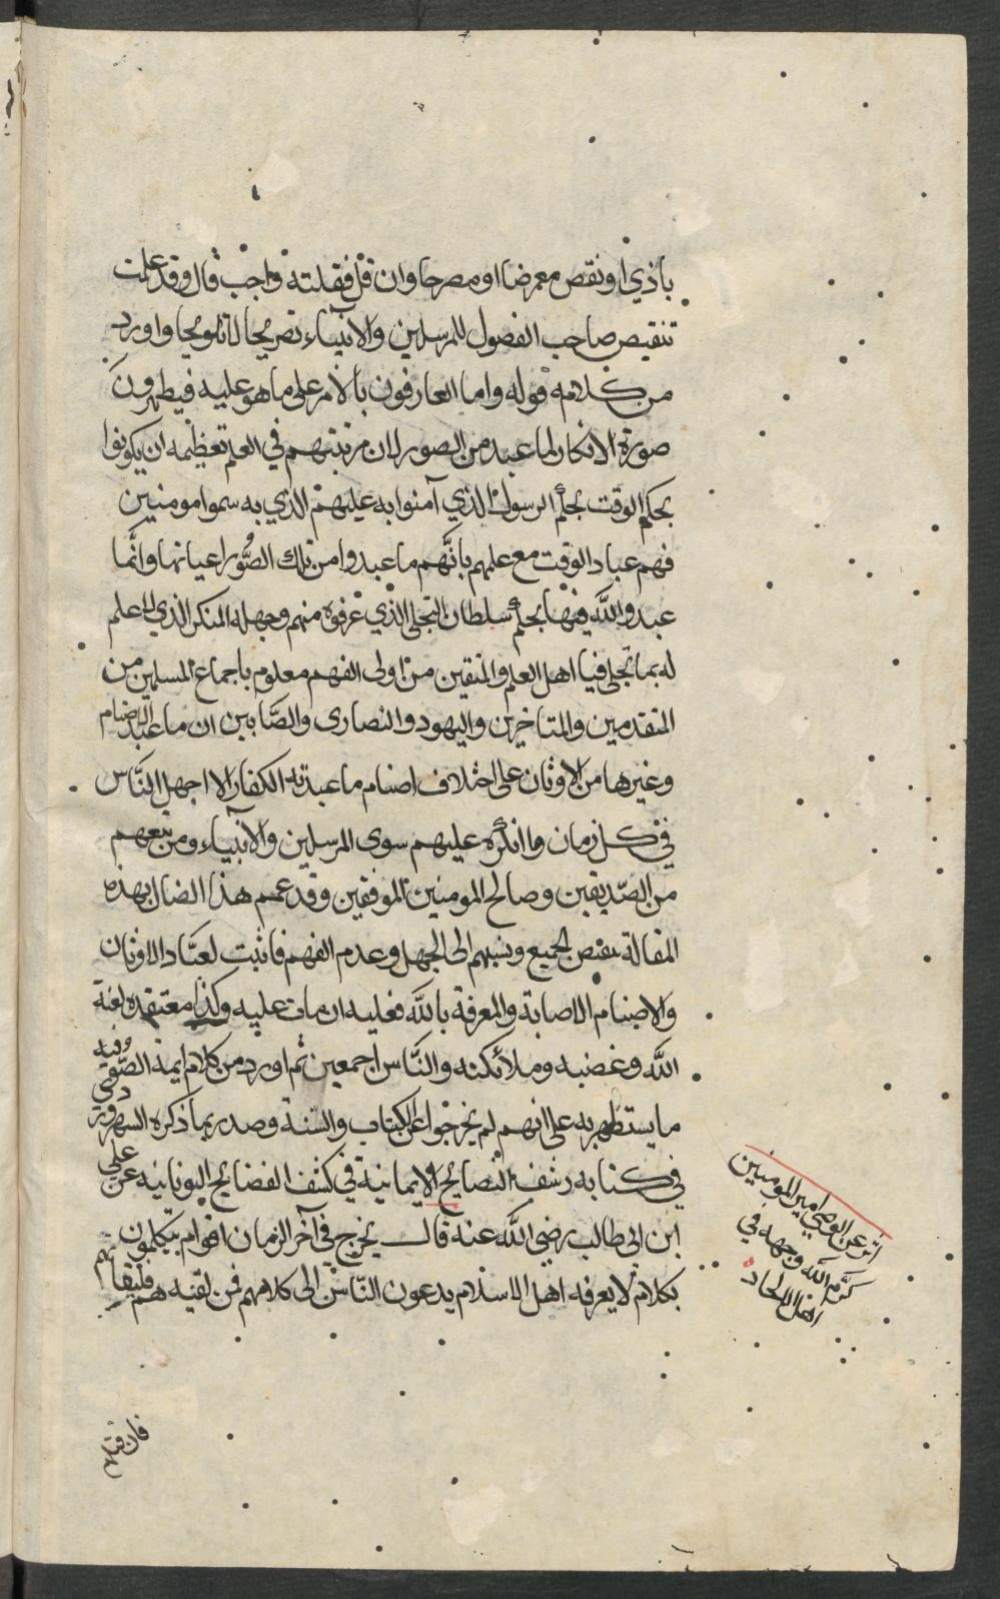 بأذي او نقص معرضا او مصرحا وان قل فقتله واجب قال وقد علمت
تنقيص صاحب الفصول للمرسلين والانبياء تصريحا لا تلويحا واورد
من كلامه قوله واما العارفون بالامر على ما هو عليه فيظهرون
صورة الانكار لما عبد من الصور لان مرتبتهم في العلم تعظيمه ان يكونوا
بحكم الوقت بحكم الرسول الذي آمنوا به عليهم الذي به سموا مومنين
فهم عباد الوقت مع علمهم بانهم ما عبدوا من تلك الصور اعيانها وانما
عبدوا الله فيها بحكم سلطان التجلي الذي عرفوه منهم وجهله المنكر الذي لا علم
له بما تجلى فيا اهل العلم والمتقين من اولى الفهم معلوم باجماع المسلمين من
المتقدمين والمتاخرين واليهود والنصارى والصابين ان ما عبد الاصنام
وغيرها من الاوثان على اختلاف اصنام ما عبدته الكفار الا اجهل الناس
في كل زمان وما انكره عليهم سوى المرسلين والانبياء ومن تبعهم
من الصديقين وصالح المومنين الموفقين وقد عمم هذا الضال بهذه
المقالة بنقص الجميع ونسبهم الى الجهل وعدم الفهم فاثبت لعباد الاوثان
والاصنام الاصابة والمعرفة بالله فعليه ان مات عليه وكذا معتقده لعنة
الله وغضبه وملائكته والناس اجمعين ثم اورد من كلام ايمة الصوفيه
ما يستظهر به على انهم لم يخرجوا عن الكتاب والسنة وصدر بما ذكره السهروردي
في كتابه رشف النصائح الايمانية في كشف الفضائح اليونانيه عن علي
ابن ابي طالب رضي الله عنه قال يخرج في آخر الزمان اقوام يتكلمون
بكلام لا يعرفه اهل الاسلام يدعون الناس الى كلامهم فمن لقيهم فليقاتلهم
اثر عن الوصي امير المومنين
كرم الله وجهه في
اهل الالحاد
فان قتلهم